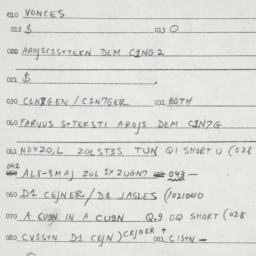 010 VONCES
012 $ 013 O
020 AROJSC1S+TEKN DEM C1NG2
021 $
030 C1N7GEN / C1N7GER 031 BOTH
040 FARVUS S+TEKST1 AROJS DEM C1N7G
041 NOX20,L 20LST3S TUN Q1 SHORT U (028
042 AL8-3MAJ 20L 1X2UGN7 043 —
060 D1 CEJNER / D1 JASLES (1021040
070 A CU9N IN A CU9N Q.9 EQ SHORT (028
080 CV1S+N D1 CEJN) CEJNER + C1S+N —